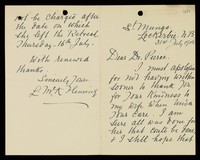 not be charged after
the date on which
she left the Retreat
Thursday 16th July.
With renewed
thanks
Sincerely yours
St Mungo
Lockerbie N.B.
July
Dear Dr. Pierce
I must apologise
for not having written
sooner to thank you
for your kindness to
my wife when under
your care. I am
sure all was done for
her that could be done
& I still hope that